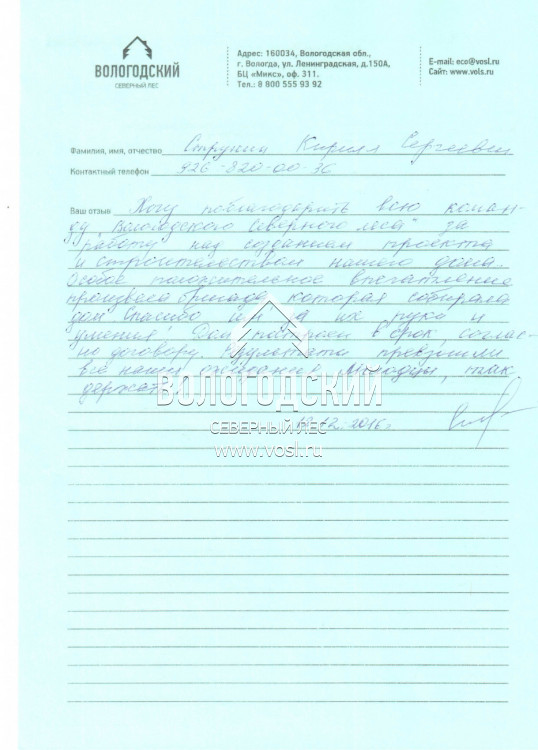 ВОЛОГОДСКИЙ
СЕВЕРНЫЙ ЛЕС
Адрес: 160034, Вологодская обл.,
г. Вологда, ул. Ленинградская, д.150А,
БЦ «Микс», оф. 311.
Тел.: 8 800 555 93 92
E-mail: eco@vosl.ru
Сайт: www.vols.ru
Фамилия, имя, отчество Кирилл Сергеевич
Контактный телефон 926-820-00-36
Ваш отзыв Хочу поблагодарить всю коман-
ду "Вологодского Северного леса" за
работу над созданием проекта
и строительством нашего дома.
Особое положительное впечатление
произвела бригада, которая собирала
дом. Спасибо им за их руки и
умения! Дом построен в срок, соглас-
но договору. Результаты превзошли
все наши ожидания. Молодцы, так
держать
ВОЛОГОДСКИЙ
СЕВЕРНЫЙ ЛЕС
12.2016г.
www.vosl.ru
ВОЛОГОДСКИЙ
СЕВЕРНЫЙ ЛЕС
www.vosl.ru